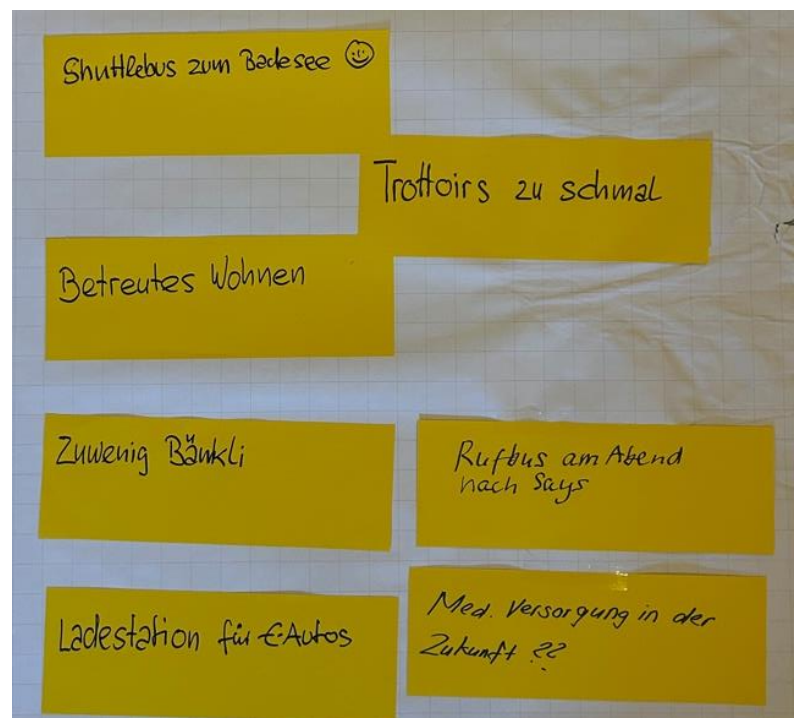 Shuttlebus zum Badesee ☺
Trottoirs zu schmal
Betreutes Wohnen
Zuwenig Bänkli
Rufbus am Abend
nach Says
Ladestation für E-Autos
Med. Versorgung in der
Zukunft ??